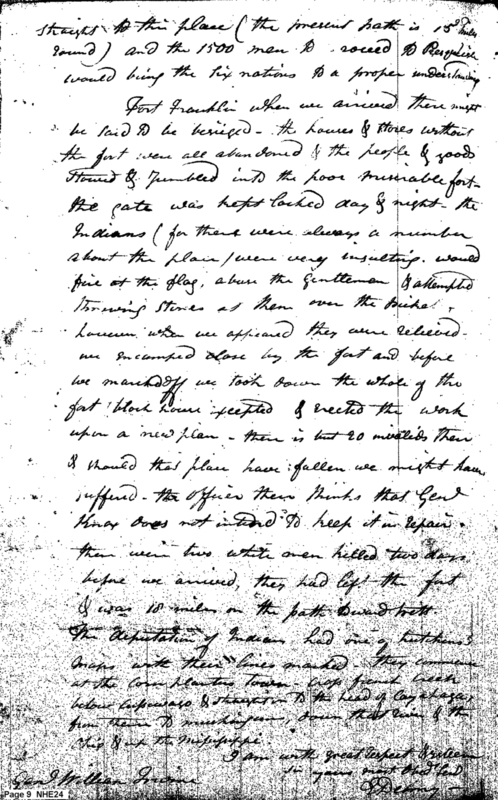 straight to this place (the present path is 15 Miles
round) and the 1500 men to proceed to Presquisle
would bring the six nations to a proper understanding
Fort Franklin when we arrived there might
be said to be besieged - the houses & stores without
the fort were all abandoned & the people & goods
stowed & Jumbled into the poor miserable fort -
the gate was kept locked day & night - the
Indians (for there were always a number
about the place) were very insulting. would
fire at the flag, abuse the Gentlemen & attempted
throwing stones at them over the
however when we appeared they were relieved -
we encamped close by the fort and before
we marched off we took down the whole of the
fort block house excepted & erected the work
upon a new plan - there is but 20 invalids there
& should that place have fallen we might have
suffered - the officer there thinks that Genl
Knox does not intend to keep it in repair.
there were two white men killed two days
before we arrived, they had left the fort
& was 18 miles on the path toward
The deputation of Indians had one of Hutchins's
maps with their lines marked - they commence
at the corn planters town - cross french creek
below & to the head of Cayahaga,
from thence to muskingum, down that river & the
ohio & up the Missisippi
I am with great respect & esteem
Sir yours most Obdt Servt
E Denny -
Genl William Irvine
Page 9 NHE24